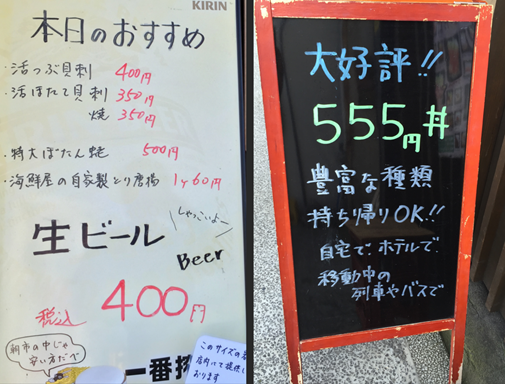 KIRIN
本日のおすすめ
・活つぶ貝刺 400円
・活ほたて貝刺 350円
焼 350円
・特大ぼたん蛯 500円
・海鮮屋の自家製とり唐揚 1ヶ60円
生ビール
しゃっこいよー
Beer
税込 400円
朝市の中じゃ
安い方だべ
一番搾
このサイズの
店内にて提供し
おります
大好評!!
555円丼
豊富な種類
持ち帰りOK!!
自宅で、ホテルで、
移動中の
列車やバスで